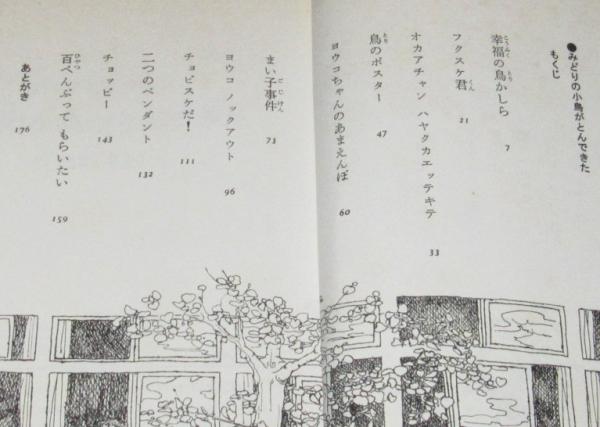 ●みどりの小鳥がとんできた
もくじ
幸福の鳥かしら 7
フクスケ君 21
オカアチャン ハヤクカエッテキテ 33
鳥のポスター 47
ヨウコちゃんのあまえんぼ 60
まい子事件 73
ヨウコ ノックアウト 96
チョビスケだ! 111
二つのペンダント 132
チョッピー 143
百ぺんぶって もらいたい 159
あとがき 176